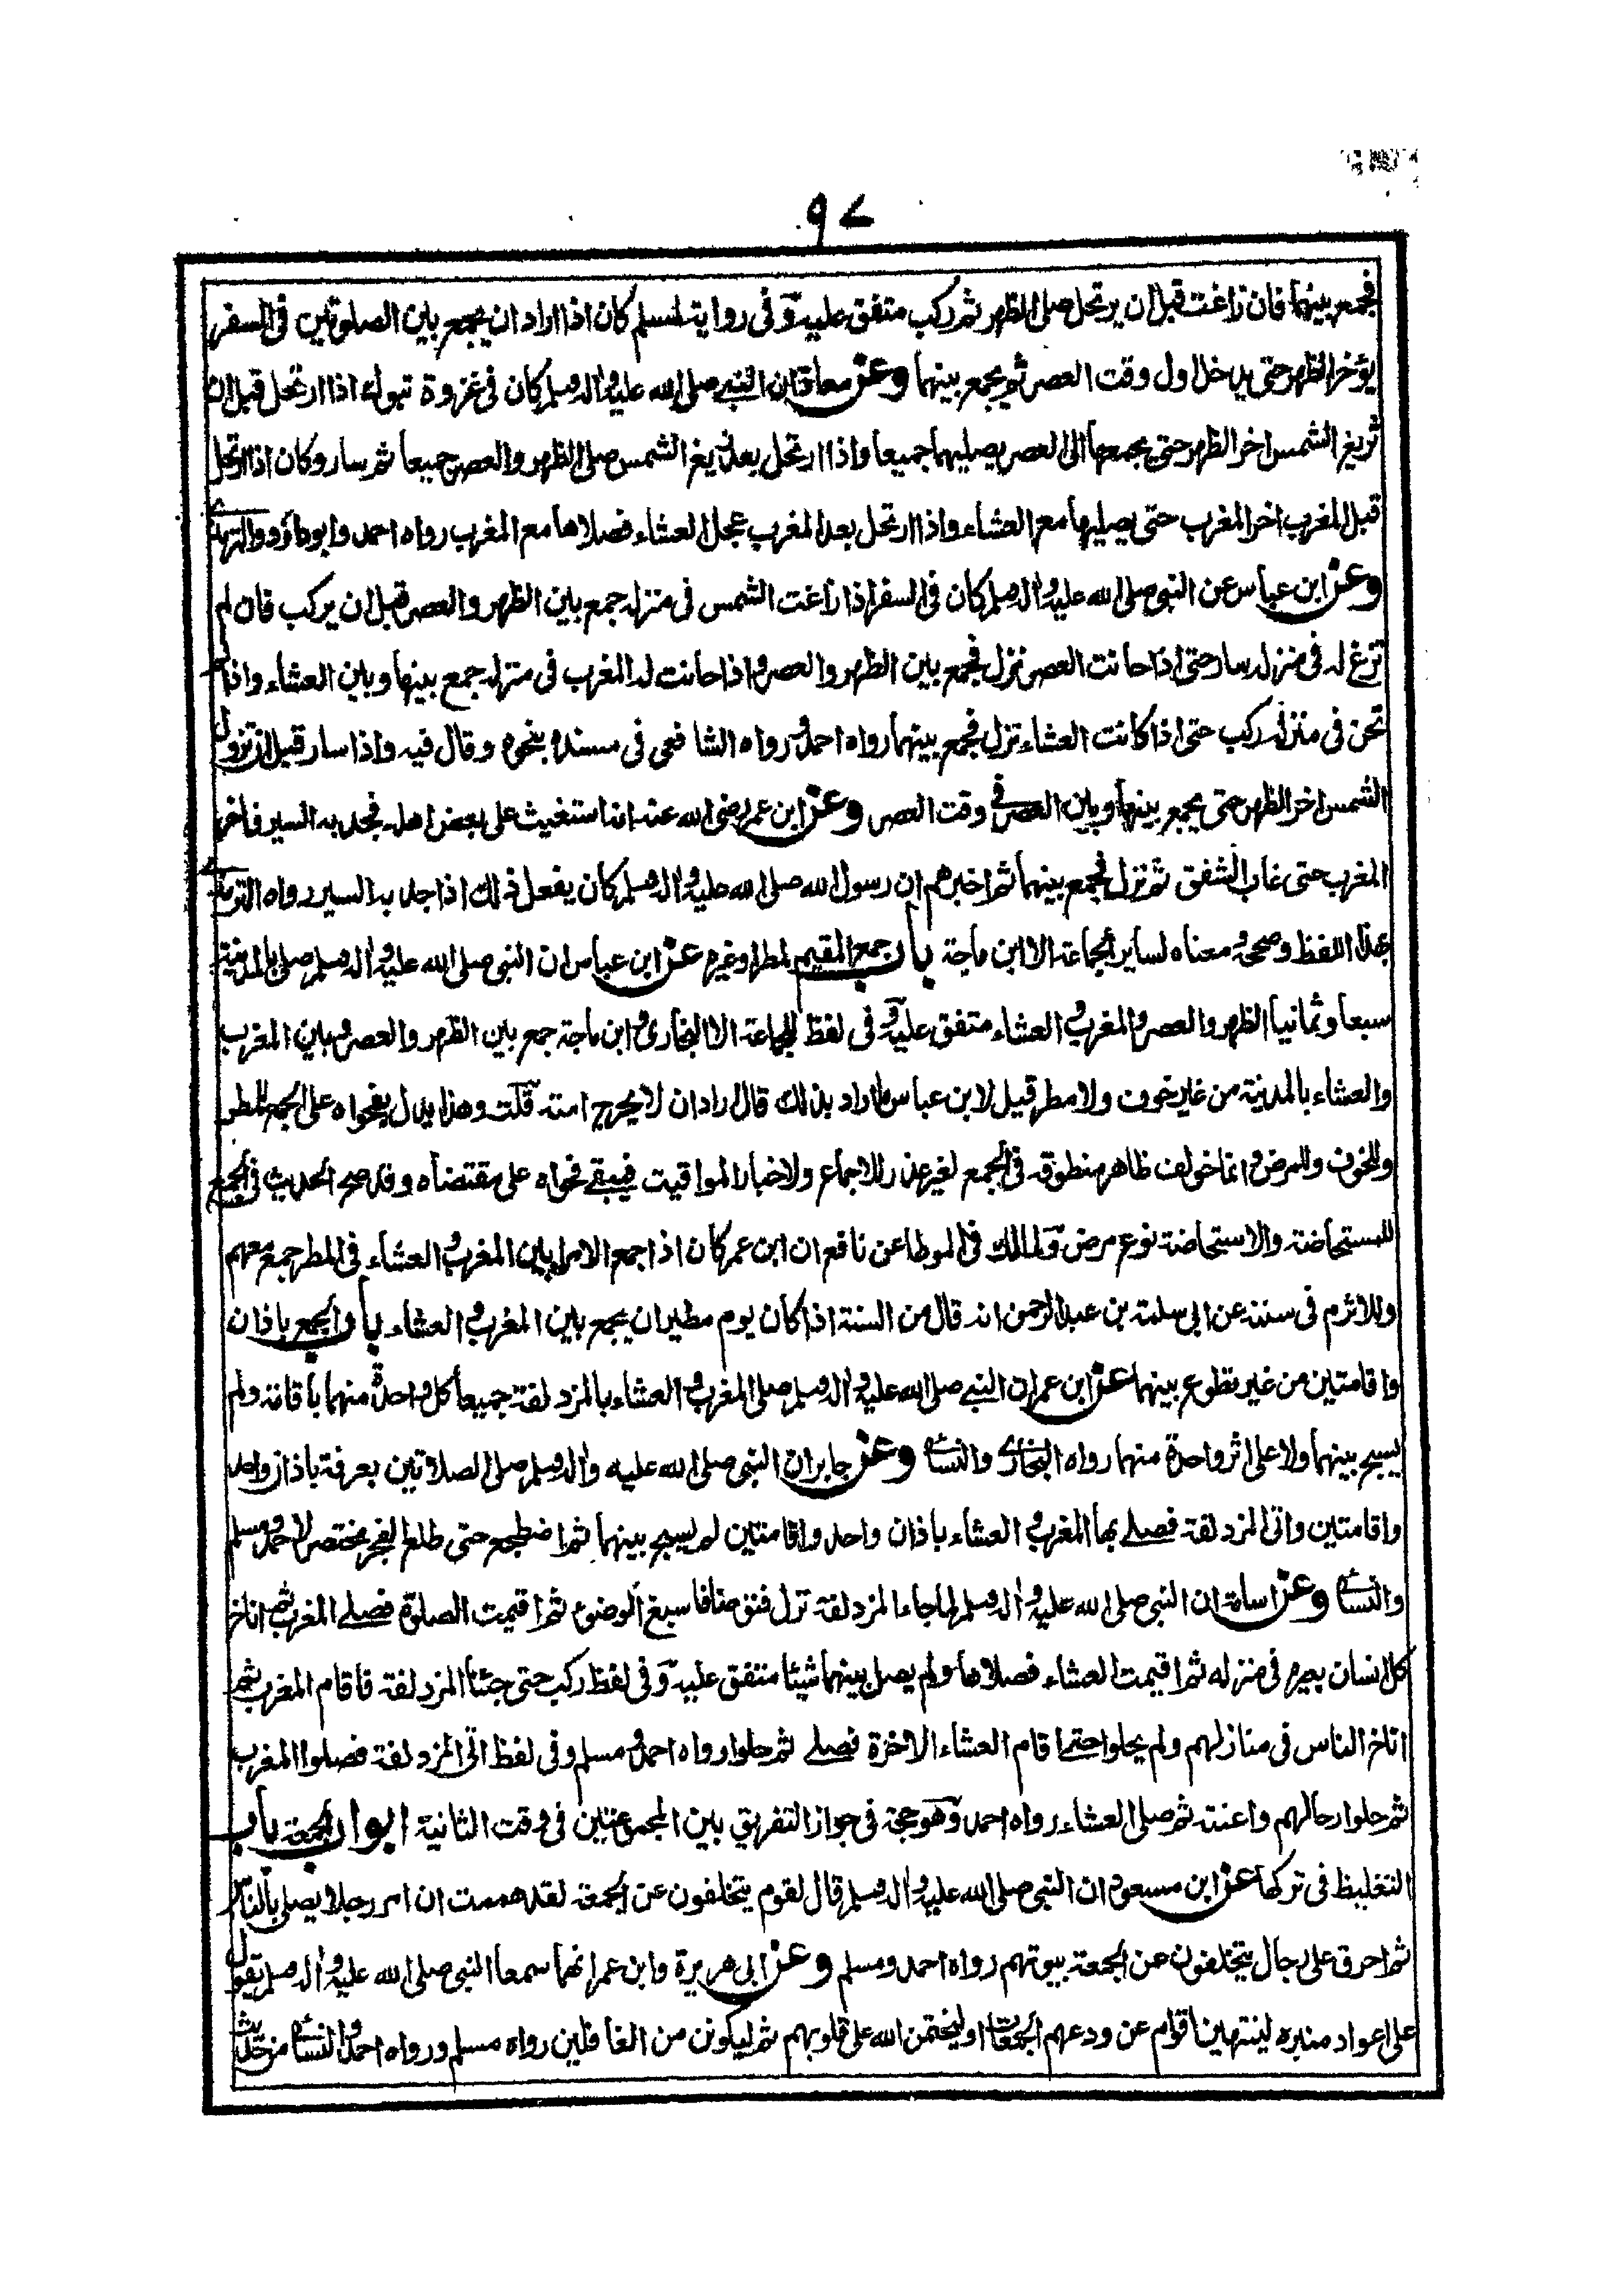 ٩٧
فجمع بينهما فان زاغت قبل ان يرتحل صلى الظهر ثم ركب متفق عليه وفى رواية لمسلم كان اذا اراد ان يجمع بين الصلوتين فى السفر
يؤخر الظهر حتى يدخل اول وقت العصر ثم يجمع بينهما وعن معاذ ان النبي صلى الله عليه واله وسلم كان فى غزوة تبوك اذا ارتحل قبل ان
تزيغ الشمس اخر الظهر حتى يجمعها الى العصر يصليهما جميعا واذا ارتحل بعد زيغ الشمس صلى الظهر والعصر جميعا ثم سار وكان اذا ارتحل
قبل المغرب اخر المغرب حتى يصليها مع العشاء واذا ارتحل بعد المغرب عجل العشاء فصلاها مع المغرب رواه احمد وابو داؤد والترمذي
وعن ابن عباس عن النبى صلى الله عليه واله وسلم كان فى السفر اذا زاغت الشمس فى منزله جمع بين الظهر والعصر قبل ان يركب فان لم
تزغ له فى منزله سار حتى اذا حانت العصر نزل فجمع بين الظهر والعصر واذا حانت له المغرب فى منزله جمع بينها وبين العشاء واذا لم
تحن فى منزله ركب حتى اذا كانت العشاء نزل فجمع بينهما رواه احمد ورواه الشافعى فى مسنده بنحوه وقال فيه واذا سار قبل ان تزول
الشمس اخر الظهر حتى يجمع بينها وبين العصر فى وقت العصر وعن ابن عمر رضى الله عنه انه استغيث على بعض اهله فجد به السير فاخر
المغرب حتى غاب الشفق ثم نزل فجمع بينهما ثم اخبرهم ان رسول الله صلى الله عليه واله وسلم كان يفعل ذلك اذا جد به السير رواه الترمذي
بهذا اللفظ وصححه ومعناه لساير الجماعة الا ابن ماجة باب جمع المقيم لمطر او غيره عن ابن عباس ان النبى صلى الله عليه واله وسلم صلى بالمدينة
سبعا وثمانيا الظهر والعصر والمغرب والعشاء متفق عليه وفى لفظ للجماعة الا البخارى وابن ماجة جمع بين الظهر والعصر وبين المغرب
والعشاء بالمدينة من غير خوف ولا مطر قيل لابن عباس ما اراد بذلك قال اراد ان لا يحرج امته قلت وهذا يدل بفحواه على الجمع للمطر
وللخوف وللمرض وانما خولف ظاهر منطوقه فى الجمع لغير عذر للاجماع ولاخبار المواقيت فيبقى فحواه على مقتضاه وقد صح الحديث فى الجمع
للمستحاضة والاستحاضة نوع مرض ولمالك فى الموطا عن نافع ان ابن عمر كان اذا جمع الامراء بين المغرب والعشاء فى المطر جمع معهم
وللاثرم فى سننه عن ابى سلمة بن عبد الرحمن انه قال من السنة اذا كان يوم مطير ان يجمع بين المغرب والعشاء باب الجمع باذان
واقامتين من غير تطوع بينهما عن ابن عمر ان النبي صلى الله عليه واله وسلم صلى المغرب والعشاء بالمزدلفة جميعا كل واحدة منهما باقامة ولم
يسبح بينهما ولا على اثر واحدة منهما رواه البخارى والنسائي وعن جابر ان النبى صلى الله عليه واله وسلم صلى الصلاتين بعرفة باذان واحد
واقامتين واتى المزدلفة فصلى بها المغرب والعشاء باذان واحد واقامتين لم يسبح بينهما ثم اضطجع حتى طلع الفجر مختصر لاحمد ومسلم
والنسائي وعن اسامة ان النبى صلى الله عليه واله وسلم لما جاء المزدلفة نزل فتوضا فاسبغ الوضوء ثم اقيمت الصلوة فصلى المغرب ثم اناخ
كل انسان بعيره فى منزله ثم اقيمت العشاء فصلاها ولم يصل بينهما شيئا متفق عليه وفى لفظ ركب حتى جئنا المزدلفة فاقام المغرب ثم
اناخ الناس فى منازلهم ولم يحلوا حتى اقام العشاء الاخرة فصلى ثم حلوا رواه احمد ومسلم وفى لفظ اتى المزدلفة فصلوا المغرب
ثم حلوا رحالهم واعنته ثم صلى العشاء رواه احمد وهو حجة فى جواز التفريق بين المجموعتين فى وقت الثانية ابواب الجمعة باب
التغليظ فى تركها عن ابن مسعود ان النبى صلى الله عليه واله وسلم قال لقوم يتخلفون عن الجمعة لقد هممت ان امر رجلا يصلى بالناس
ثم احرق على رجال يتخلفون عن الجمعة بيوتهم رواه احمد ومسلم وعن ابى هريرة وابن عمر انهما سمعا النبى صلى الله عليه واله وسلم يقول
على اعواد منبره لينتهين اقوام عن ودعهم الجمعات او ليختمن الله على قلوبهم ثم ليكونن من الغافلين رواه مسلم ورواه احمد والنسائي من حديث